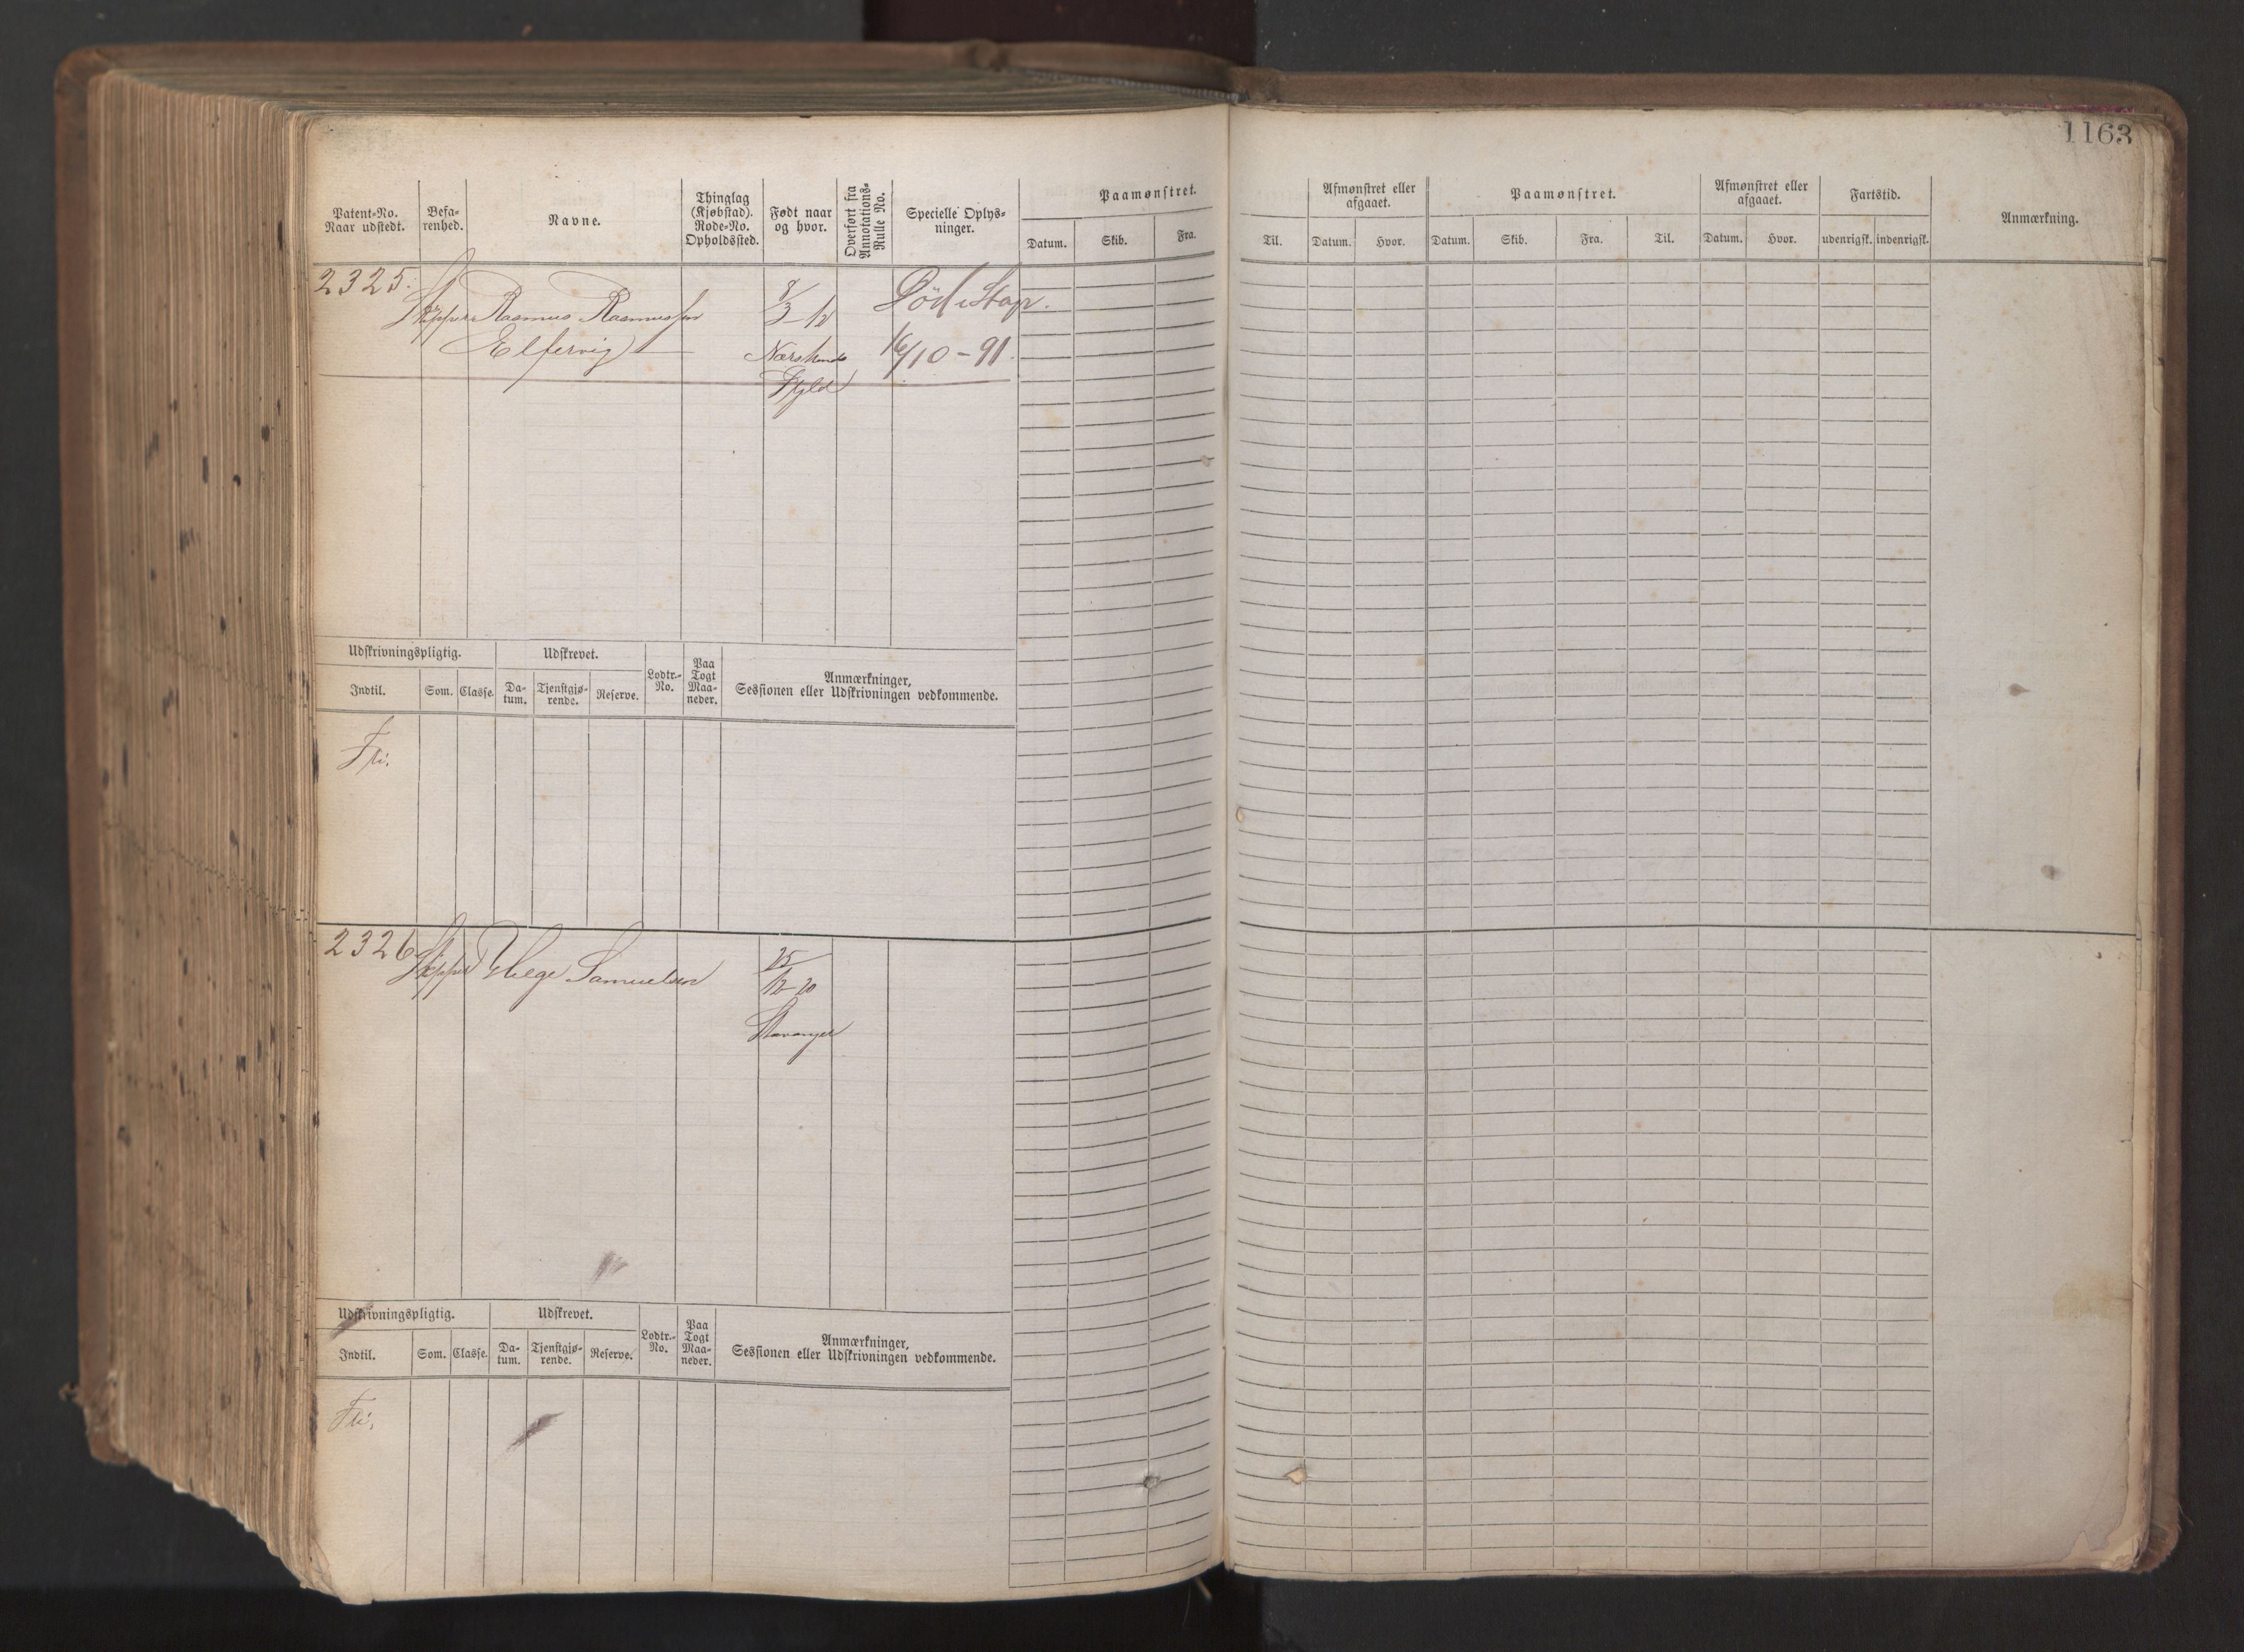 1163
Patent-No.
Naar udstedt.
Befa-
renhed.
Navne.
Thinglag
(Kjøbstad).
Rode-No.
Opholdssted.
Født naar
og hvor.
Overført fra
Annotations-
Rulle No.
Specielle Oplys-
ninger.
Paamønstret.
Datum.
Skib.
Fra.
Til.
Afmønstret eller
afgaaet.
Datum.
Hvor.
Paamønstret.
Datum.
Skib.
Fra.
Til.
Afmønstret eller
afgaaet.
Datum.
Hvor.
Fartstid.
udenrigsk.
indenrigsk.
Anmærkning.
2325.
Skipper Rasmus Rasmussen
Elfervig
8/3-12
Død i Stavgr.
16/10-91.
Udskrivningspligtig.
Udskrevet.
Lodtr.-
No.
Paa
Togt
Maa-
neder.
Anmærkninger,
Sessionen eller Udskrivningen vedkommende.
Indtil.
Som.
Classe.
Da-
tum.
Tjenstgjø-
rende.
Reserve.
Fri.
2326
Skipper Helge Samuelsen
25/12-20
Stavanger
Udskrivningspligtig.
Udskrevet.
Lodtr.-
No.
Paa
Togt
Maa-
neder.
Anmærkninger,
Sessionen eller Udskrivningen vedkommende.
Indtil.
Som.
Classe.
Da-
tum.
Tjenstgjø-
rende.
Reserve.
Fri.